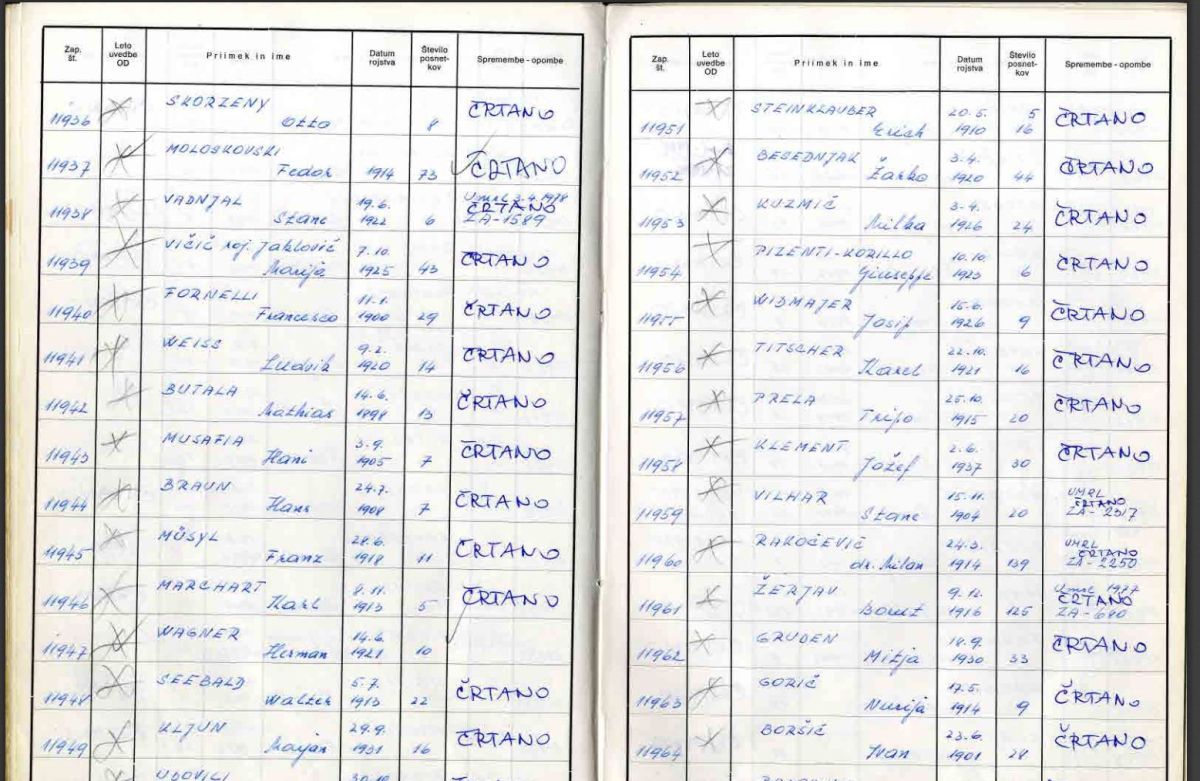 Zap. št. Leto uvedbe OD Priimek in ime Datum rojstva Število posnet-kov Spremembe - opombe
11936 SKORZENY Otto 8 ČRTANO
11937 MOLOSKOVSKI Fedor 1914 73 ČRTANO
11938 VADNJAL Stane 19.6. 1922 6 Umrl 2.4.1978 ČRTANO ZA-1589
11939 VIČIČ roj. Jaklovič Marija 7.10. 1925 43 ČRTANO
11940 FORNELLI Francesco 11.1. 1900 29 ČRTANO
11941 WEISS Ludvik 9.2. 1920 14 ČRTANO
11942 BUTALA Mathias 14.6. 1898 13 ČRTANO
11943 MUSAFIA Hani 3.9. 1905 7 ČRTANO
11944 BRAUN Hans 24.7. 1908 7 ČRTANO
11945 MÜSYL Franz 1918 11 ČRTANO
11946 MARCHART Karl 1913 5 ČRTANO
11947 WAGNER Herman 14.6. 1921 10
11948 SEEBALD Walter 5.7. 1913 22 ČRTANO
11949 KLJUN Marjan 29.9. 1931 16 ČRTANO
Zap. št. Leto uvedbe OD Priimek in ime Datum rojstva Število posnet-kov Spremembe - opombe
11951 STEINKLAUBER Erich 20.5. 1910 5 16 ČRTANO
11952 BESEDNJAK Žarko 3.4. 1920 44 ČRTANO
11953 KUZMIČ Milka 3.4. 1926 24 ČRTANO
11954 PIZENTI-KORILLO Giuseppe 10.10. 1923 6 ČRTANO
11955 WIDMAJER Josip 1926 9 ČRTANO
11956 TITSCHER Karel 22.10. 1921 16 ČRTANO
11957 PRELA Tripo 25.10. 1915 20 ČRTANO
11958 KLEMENT Jožef 2.6. 1937 30 ČRTANO
11959 VILHAR Stane 15.11. 1904 20 UMRL ČRTANO ZA-2317
11960 RAKOČEVIČ dr. Milan 24.3. 1914 139 UMRL ČRTANO ZA-2250
11961 ŽERJAV Borut 9.12. 1916 125 Umrl 1977 ČRTANO ZA-680
11962 GRUDEN Mitja 1930 33 ČRTANO
11963 GORIČ Nurija 17.5. 1914 9 ČRTANO
11964 BORŠIČ Ivan 23.6. 1901 28 ČRTANO